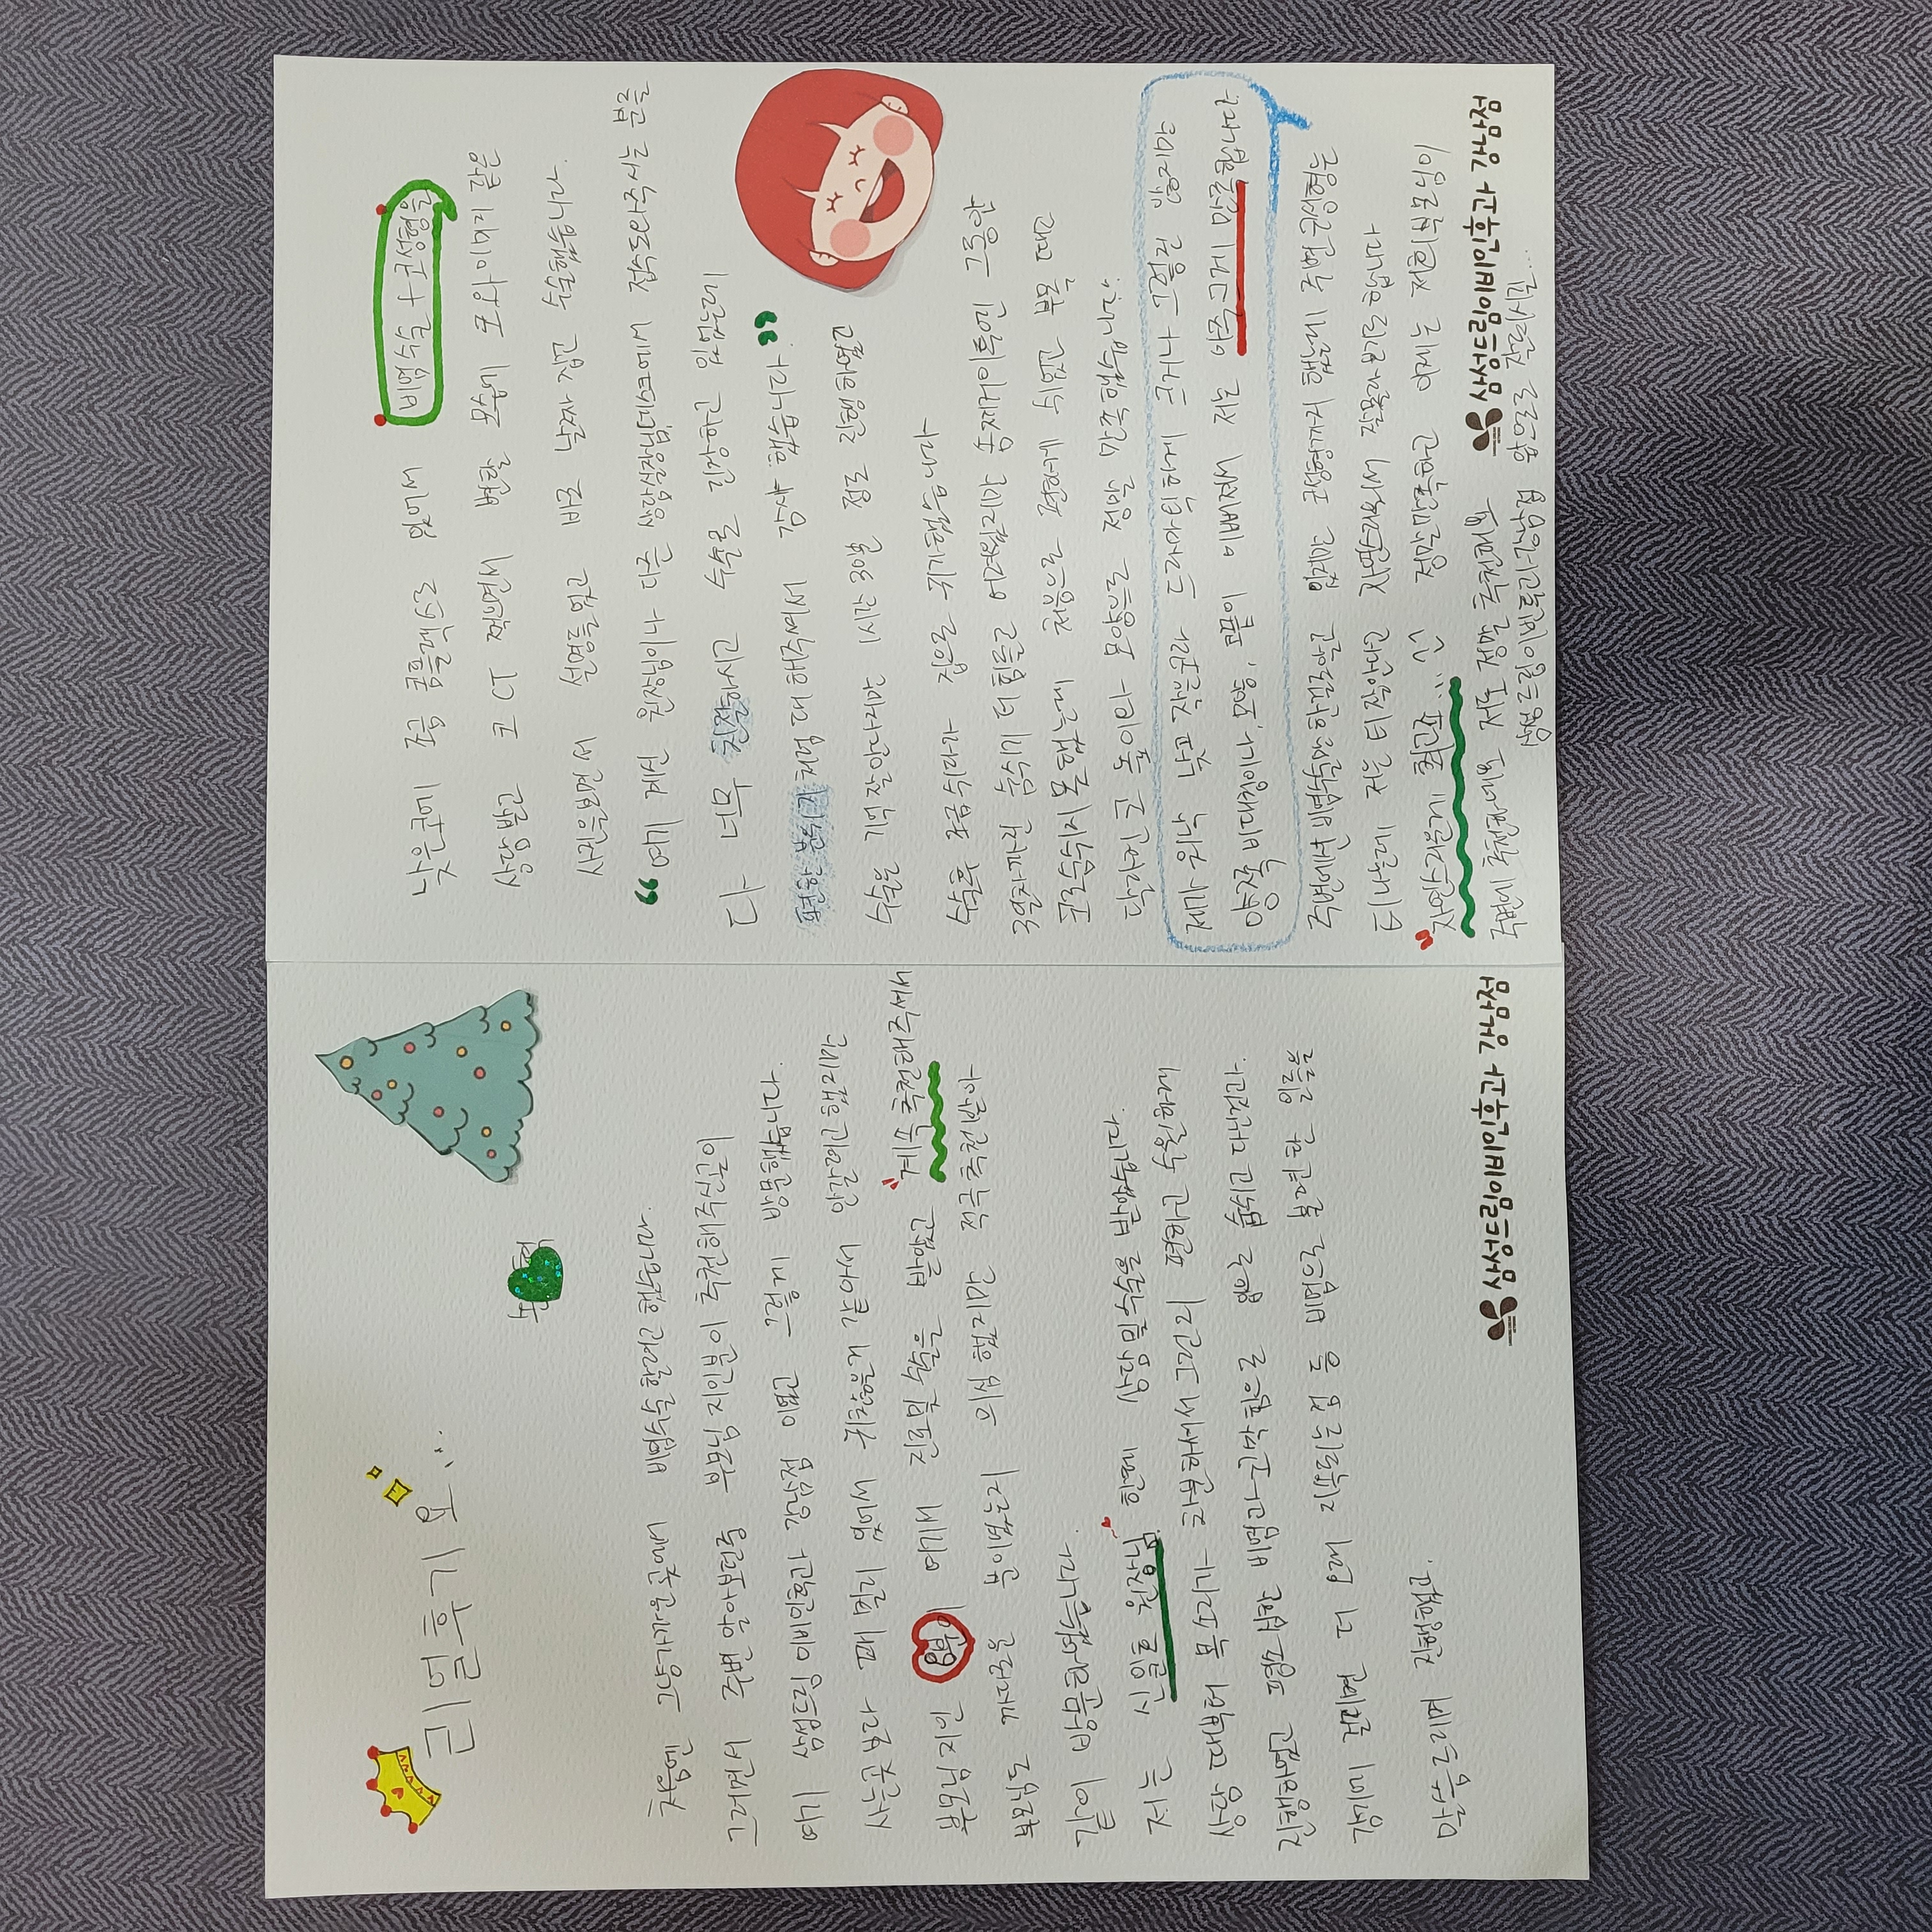 리얼후기요...
처음엔 그냥가까운곳에서 비염수술할려고 했습니다.
그러면서 주변 알아보던중 부모님 지인분이 추천해주신곳이
여기 삼성드림 이비인후과 강남점 이였고 그렇게 방문했습니다.
사는곳 보다 꽤 멀리 있어서 귀찮을거 같아서 안갈려고했지만
부모님 지인 분이 여기서 진료및 수술을 받았고 "계속 추천해주셔서
부모님도 까다로운 분이였는지 의심했지만 적극추천받아
같이 방문하였습니다.
저는 신일호 원장님 한테 상담및수술을 받았습니다.
상담 때부터 목소리가 차분하셔서 그런지 편하고 수월하게
진행하였고 평소 심한 비염과 코막힘으로 입으로 숨쉬고 다닌것과.
감기에 걸리면 더 오래 지속되는점 등 비염으로 불편한 일들을
말씀드리며 진행했고.
삼성드림이비인후과 강남점
낮은코에 조금 콤플렉스로 있어서 비염수술 + 코성형을
상담받고 코 CT 찍으면서 변할 모습에 코와이미지 같은
사진을보면서 설명들었고 바로 날짜 잡고 수술했습니다.
“여기 계신 원장님이나 다른 상담실장님,데스크에서 접수도와주시는 분들
다 너무 친절하시고 수술로 긴장하고 있었는데
편한 분위기처럼 대해주셔서 감사 했습니다.”
수술은 기억잘안나지만 1시간 30분 정도 진행하였고
수술후 조금쉬다가 집으로 귀가했습니다
3일차까진 숨쉬기 더 힘들고 어려웠지만 솜제거이후엔 그동안
코로숨쉬지 못했는데 처음으로 편하게 쉬었고 부목 떼고
달라진 코 높이와 모양으로 정말 만족했습니다.
제가 워낙 낮고 작은코라 드라마틱하게 크거나 그렇진 않지만
양쪽 비대칭이나, 모양, 코끝이 이뻐져서 저는 아주크게 만족합니다.
주변에선 비염수술만 한걸로알고 있지만 코성형까지 했는데 주변 코성형은
티나는데 저는 티잘안나고 자연스러워서 잘몰라보기도 합니다
"자연스러운게 최고죠... ^^ 정말만족하고 이제는 저희부모님이
주변에 추천하네요 저도 정말 추천해요
삼성드림이비인후과 강남점
삼성드림이빈후과강남점 앞으로도 잘되시길...